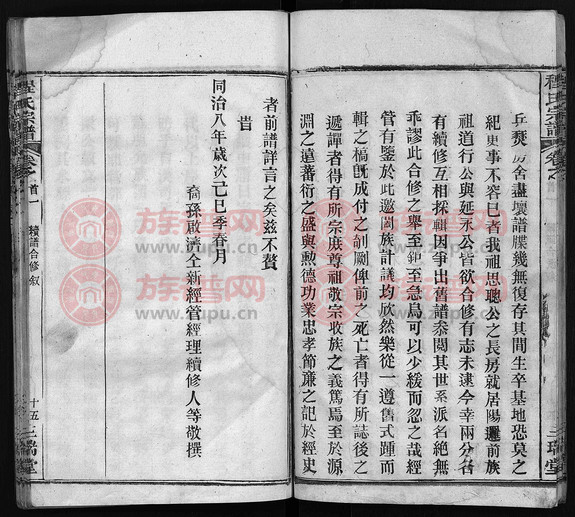 兵燹房舍盡壞譜牒幾無復存其間生卒基地恐莫之
紀更事不容已者我祖思聰公之長房就居陽邏前族
祖道行公與延永公皆欲合修有志未逮今幸兩分各
有續修互相採輯因爭出舊譜參閱其世系派名絕無
乖謬此合修之舉至鉅至急焉可以少緩而忽之哉經
管有鑒於此邀闔族計議均欣然樂從一遵舊式踵而
輯之稿旣成付之剞劂俾前之死亡者得有所誌後之
遞譯者得有所宗庶尊祖敬宗收族之義篤焉至於源
淵之遠蕃衍之盛與勲德功業忠孝節廉之記於經史
者前譜詳言之矣茲不贅
昔
同治八年歲次己巳季春月
裔孫啟濟全新經管經理續修人等敬撰
程氏宗譜
卷之首一
續譜合修敘
十五
三瑞堂
程氏宗譜
卷之首
三瑞堂
族譜网
www.zupu.cn
族譜网
www.zupu.cn
族譜网
www.zupu.cn
族譜网
www.zupu.cn